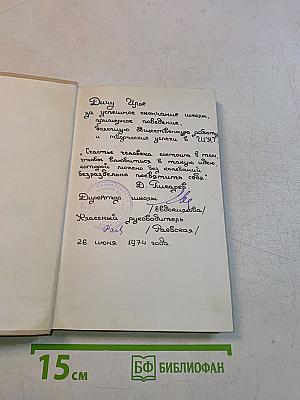 Дичу Илье
за успешное окончание школы,
примерное поведение,
большую общественную работу
и творческие успехи в
"Счастье человека состоит в том
чтобы влюбиться в такую идею,
которой можно без колебаний
безраздельно посвятить себя."
Д. Писарев
Директор школы
/Евдокимова/
Классный руководитель
/Раевская/
26 июня 1974 года.
15 см
БФ БИБЛИОФАН